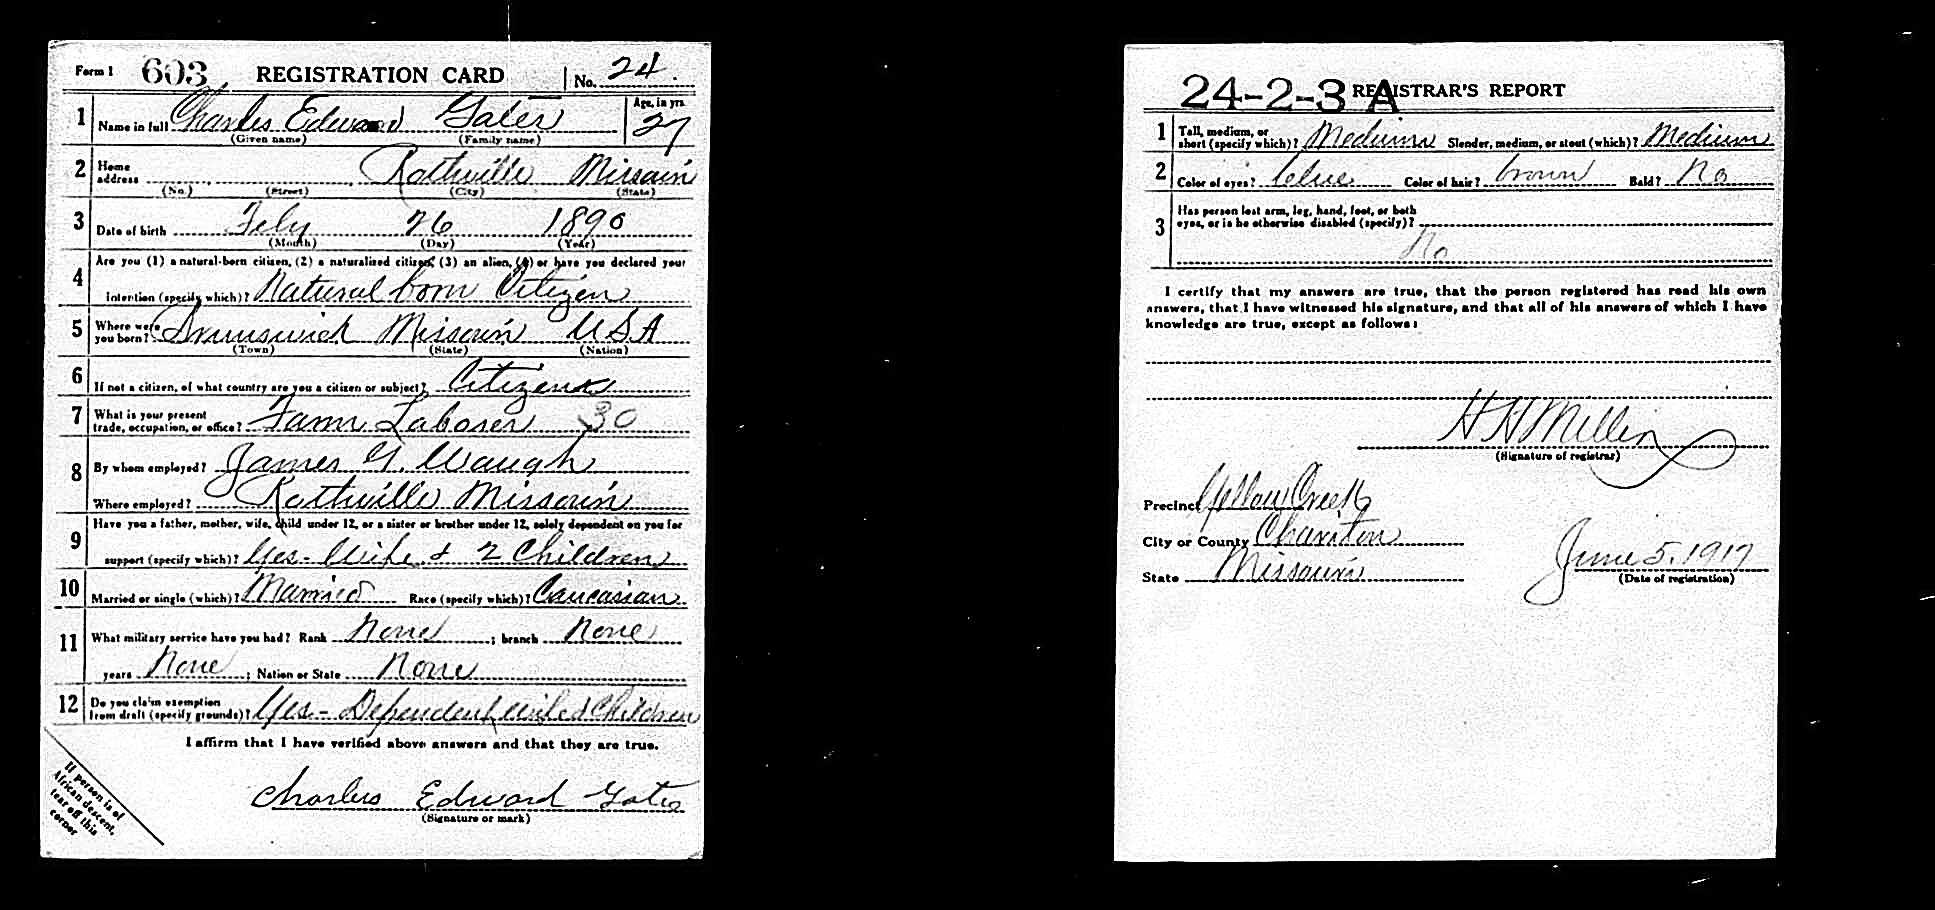 Form 1 603 REGISTRATION CARD No. 24.
1 Name in full Charles Edward Gates Age, in yrs. 27
(Given name) (Family name)
2 Home address Rothville Missouri
(No.) (Street) (City) (State)
3 Date of birth Feby 26 1890
(Month) (Day) (Year)
4 Are you (1) a natural-born citizen, (2) a naturalized citizen, (3) an alien, (4) or have you declared your
intention (specify which)? Natural born Citizen
5 Where were you born? Brunswick Missouri USA
(Town) (State) (Nation)
6 If not a citizen, of what country are you a citizen or subject? Citizen
7 What is your present trade, occupation, or office? Farm Laborer 30
8 By whom employed? James G. Waugh
Where employed? Rothville Missouri
9 Have you a father, mother, wife, child under 12, or a sister or brother under 12, solely dependent on you for
support (specify which)? Yes - Wife & 2 Children
10 Married or single (which)? Married Race (specify which)? Caucasian
11 What military service have you had? Rank None ; branch None
years None ; Nation or State None
12 Do you claim exemption from draft (specify grounds)? Yes - Dependent Children
I affirm that I have verified above answers and that they are true.
Charles Edward Gates
(Signature or mark)
If person is of
African descent,
tear off this
corner
24-2-3 A REGISTRAR'S REPORT
1 Tall, medium, or short (specify which)? Medium Slender, medium, or stout (which)? Medium
2 Color of eyes? blue Color of hair? brown Bald? No
3 Has person lost arm, leg, hand, foot, or both
eyes, or is he otherwise disabled (specify)?
No
I certify that my answers are true, that the person registered has read his own
answers, that I have witnessed his signature, and that all of his answers of which I have
knowledge are true, except as follows:
H H Miller
(Signature of registrar)
Precinct Yellow Creek
City or County Chariton
State Missouri
June 5, 1917
(Date of registration)